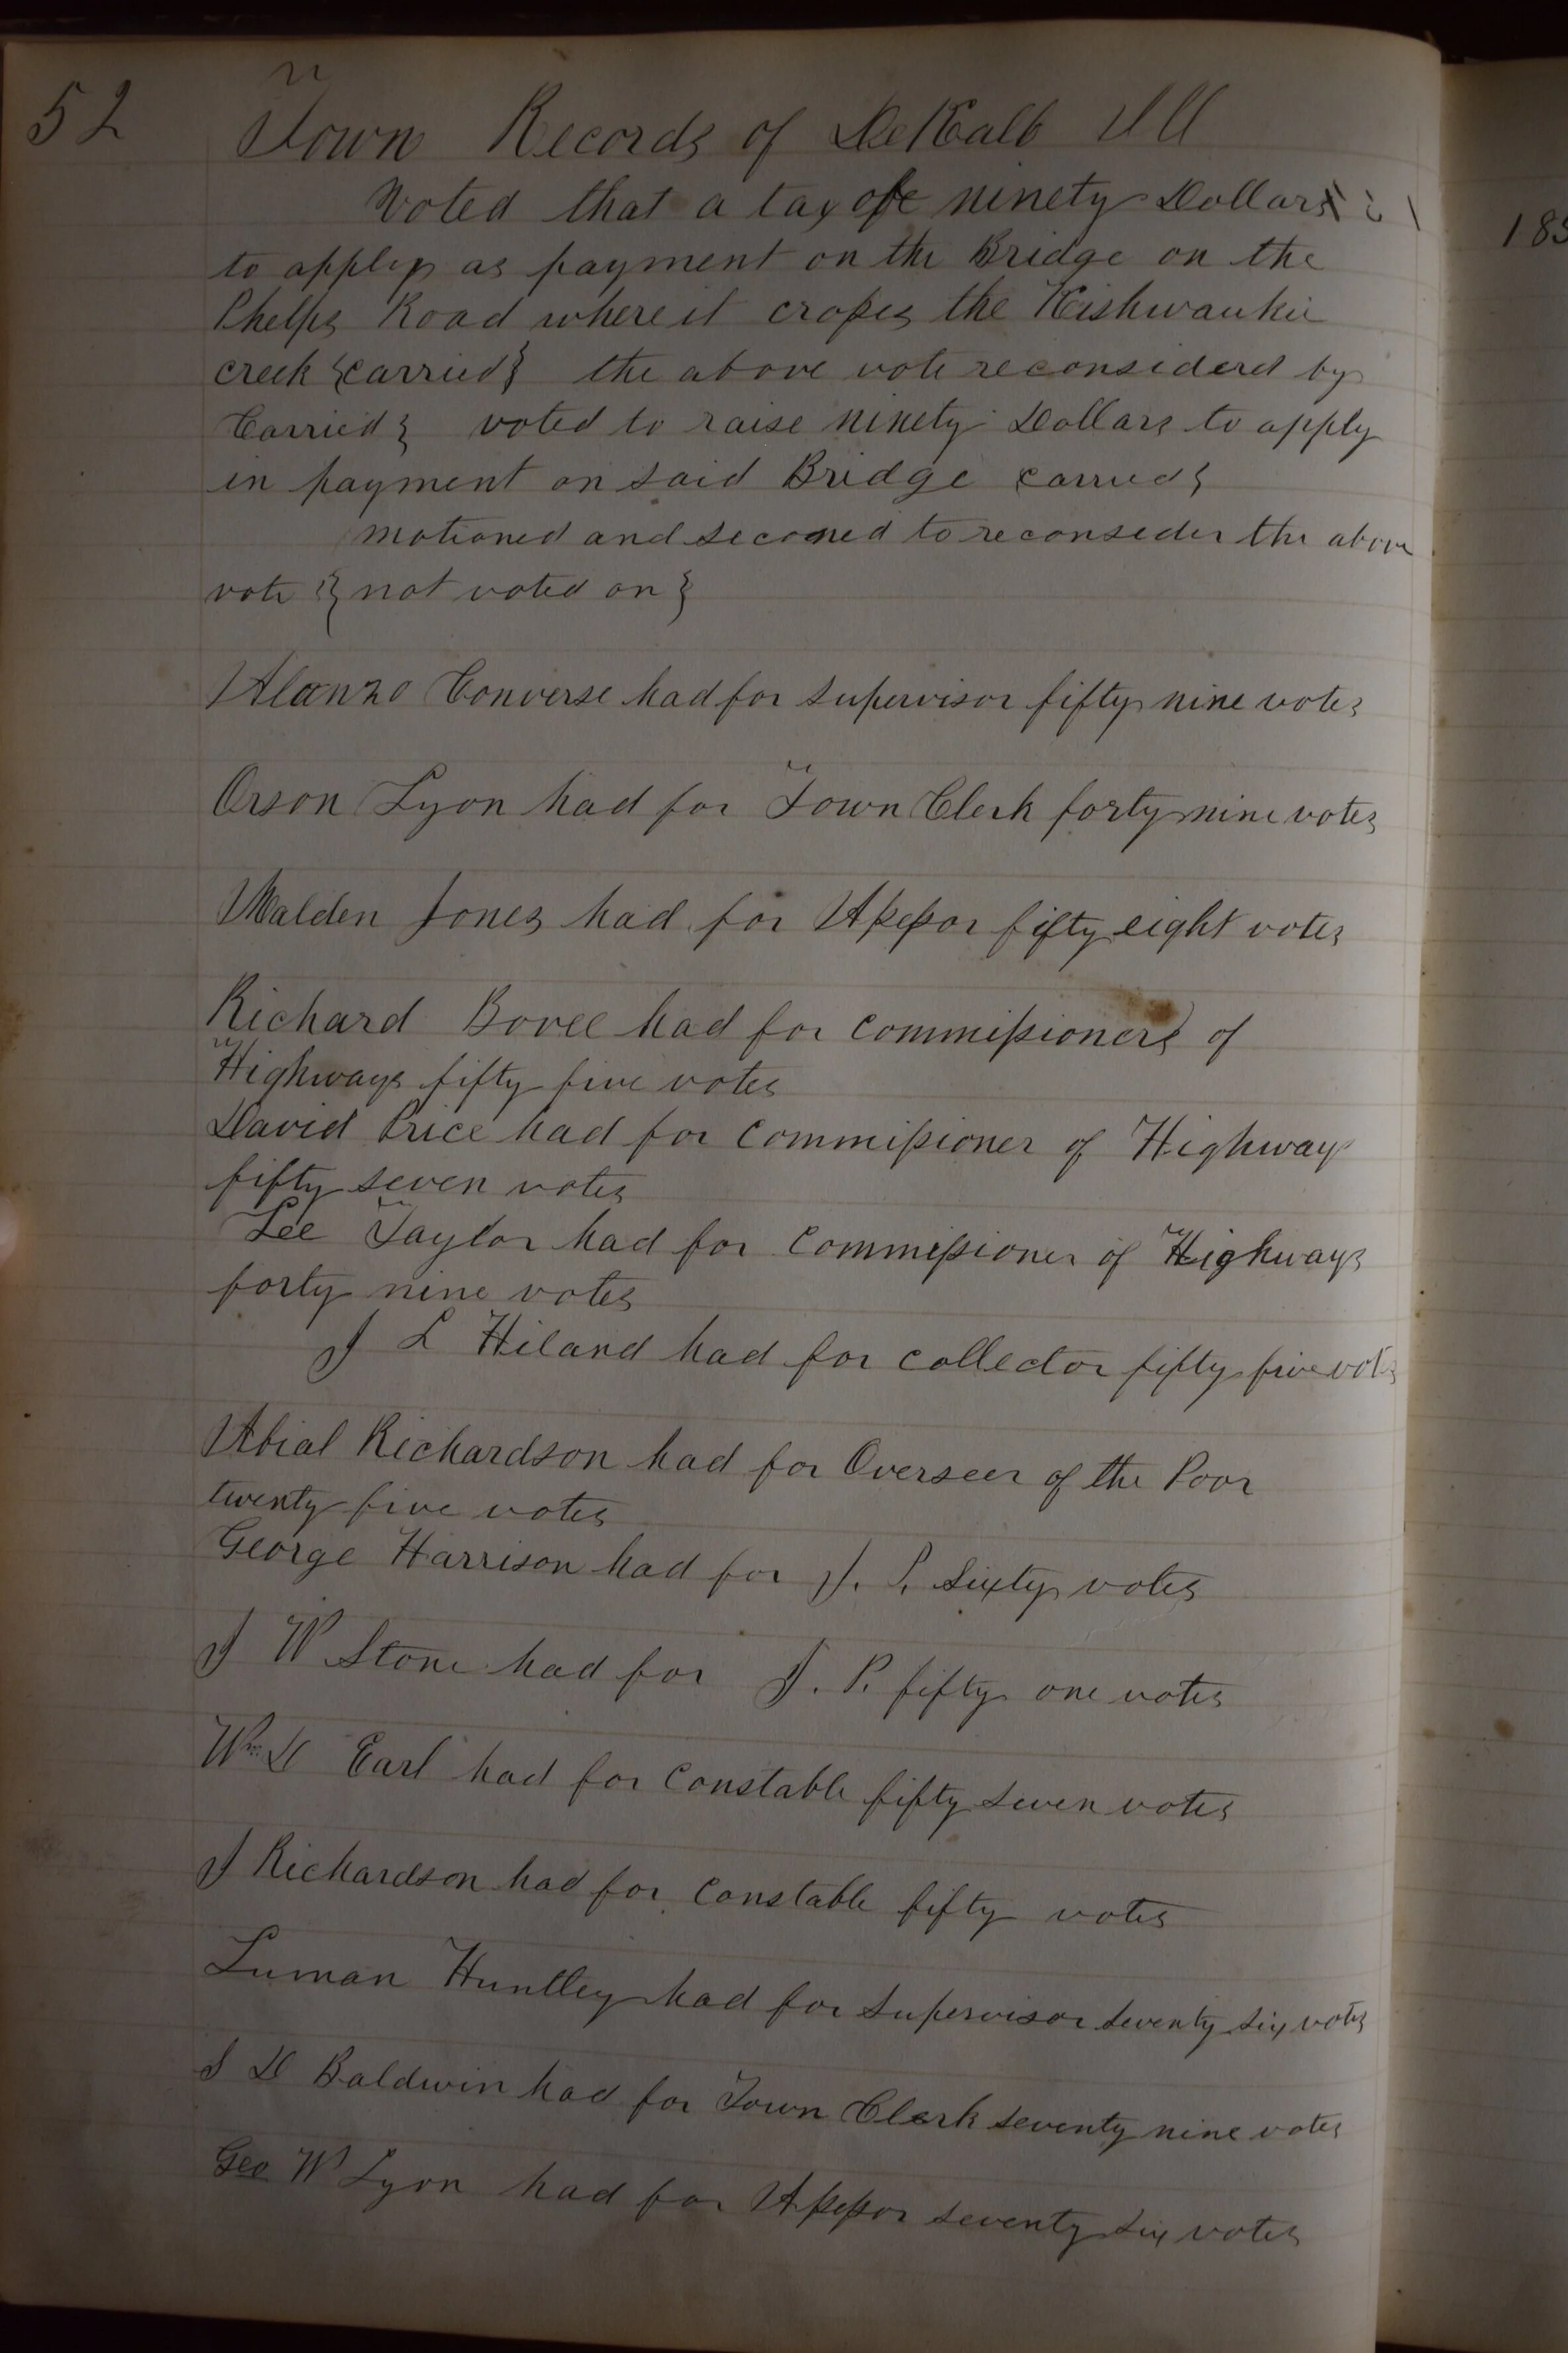 52 Town Records of DeKalb Ill
Voted that a tax of ninety Dollars
to apply as payment on the Bridge on the
Phelps Road where it crosses the Kishwaukie
creek {carried} the above vote reconsiderd by
Carried} voted to raise ninety Dollars to apply
in payment on said Bridge carried}
motioned and seconed to reconsider the above
vote {not voted on}
Alonzo Converse had for Supervisor fifty nine votes
Orson Lyon had for Town Clerk forty nine votes
Walden Jones had for Assessor fifty eight votes
Richard Bovee had for commissioners of
Highways fifty five votes
David Price had for Commissioner of Highways
fifty seven votes
Lee Taylor had for Commissioner of Highways
forty nine votes
J L Hiland had for collector fifty five votes
Abial Richardson had for Overseer of the Poor
twenty five votes
George Harrison had for J. P. Sixty votes
J W Stone had for J. P. fifty one votes
Wm D Earl had for Constable fifty seven votes
J Richardson had for Constable fifty votes
Luman Huntley had for Supervisor seventy six votes
S D Baldwin had for Town Clerk seventy nine votes
Geo W Lyon had for Assessor seventy six votes
185